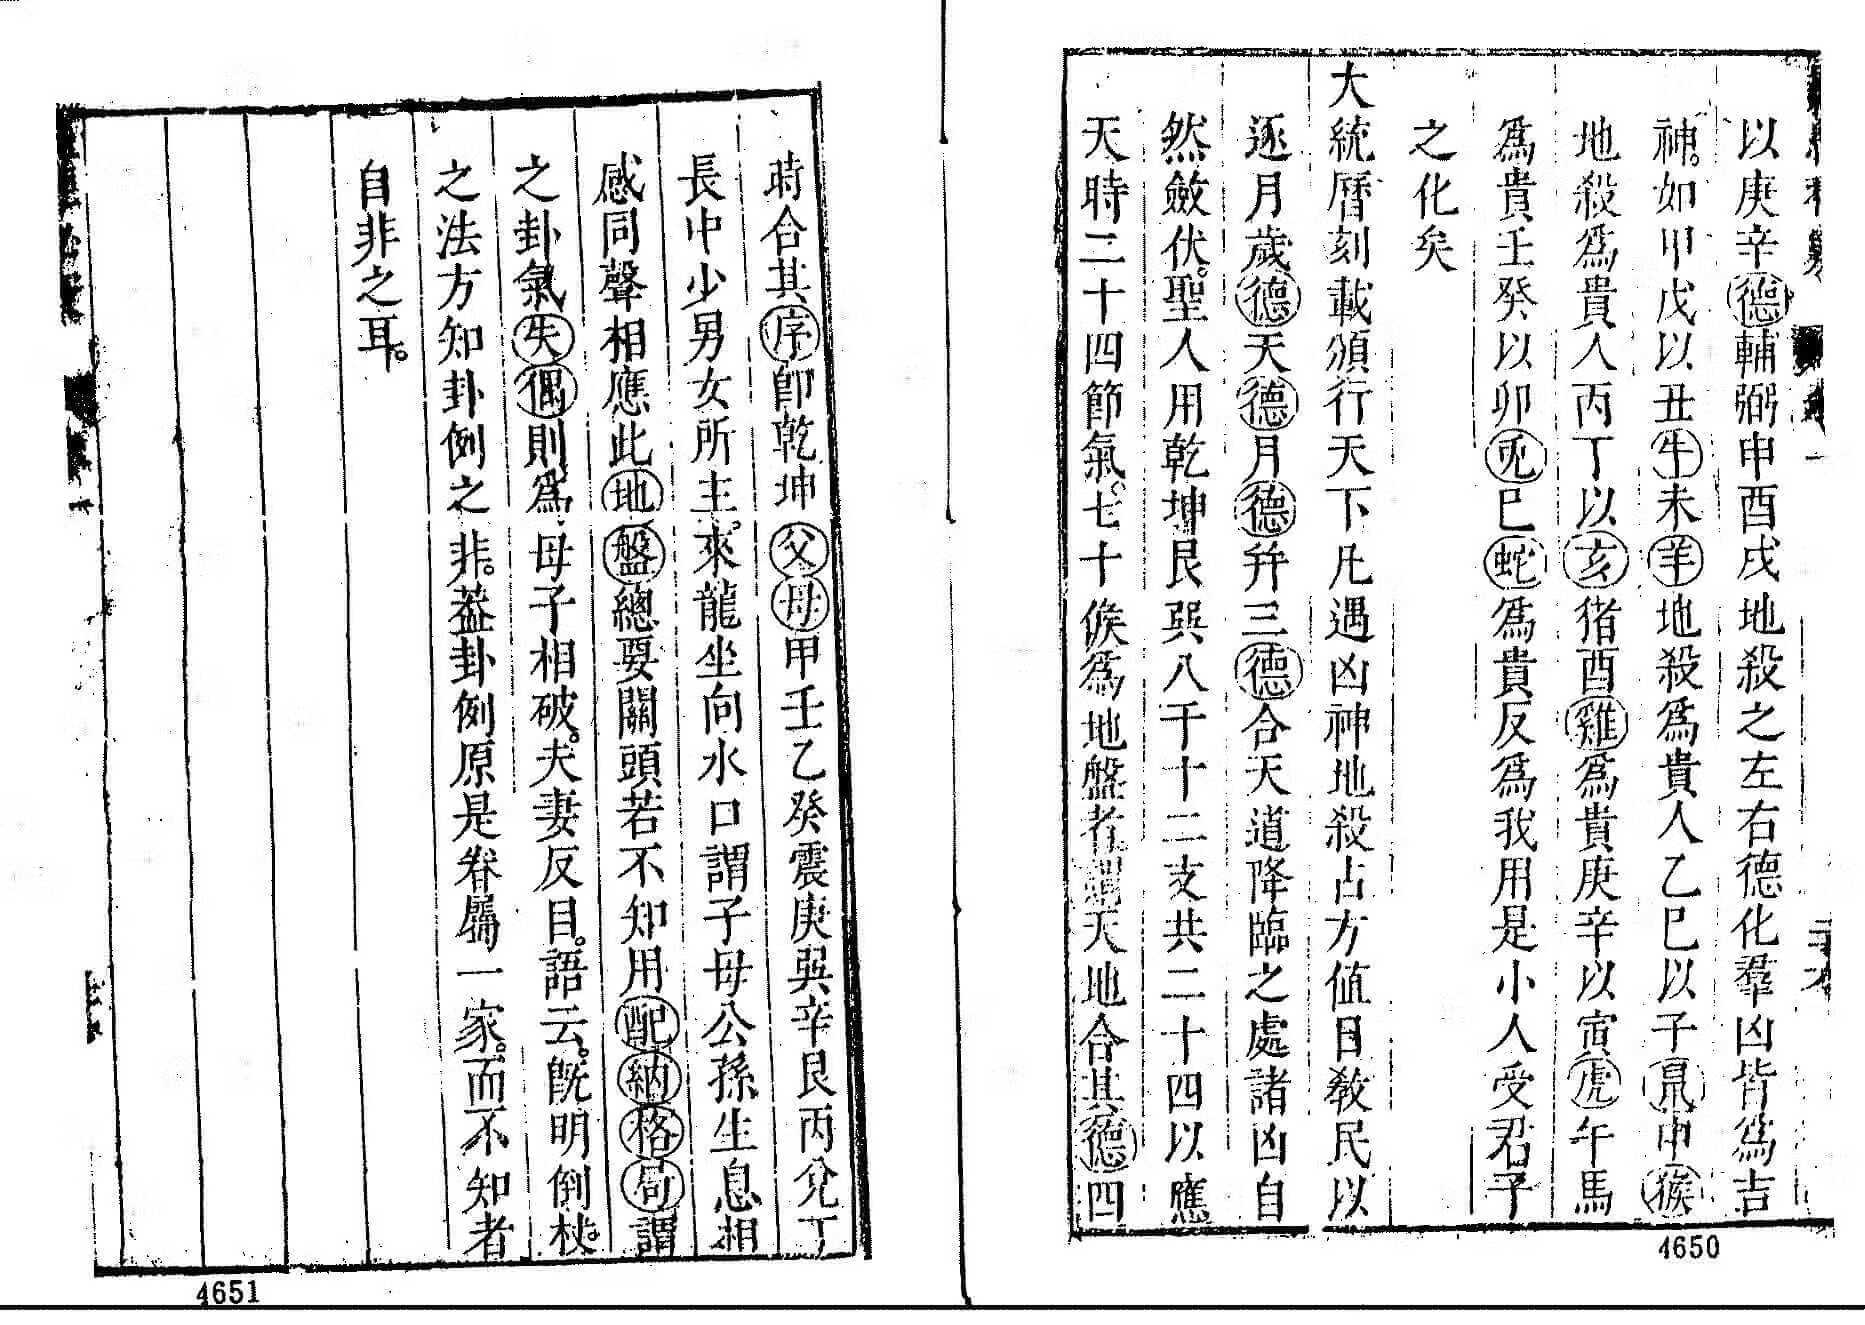 以庚辛德輔弼申酉戌地殺之左右德化羣凶皆爲吉
神。如甲戊以丑牛未羊地殺爲貴人乙巳以子鼠申猴
地殺爲貴人丙丁以亥猪酉雞爲貴庚辛以寅虎午馬
爲貴壬癸以卯兎巳蛇爲貴反爲我用是小人受君子
之化矣
大統曆刻載頒行天下凡遇凶神地殺占方值日敎民以
逐月歲德天德月德幷三德合天道降臨之處諸凶自
然斂伏。聖人用乾坤艮巽八干十二支共二十四以應
天時二十四節氣。七十候爲地盤者謂天地合其德四
時合其序卽乾坤父母甲壬乙癸震庚巽辛艮丙兌丁
長中少男女所主。來龍坐向水口謂子母公孫生息相
感同聲相應此地盤總要關頭若不知用配納格局謂
之卦氣失偶則爲母子相破。夫妻反目。語云。旣明倒杖。
之法方知卦例之非。葢卦例原是眷屬一家。而不知者
自非之耳。
4650
4651